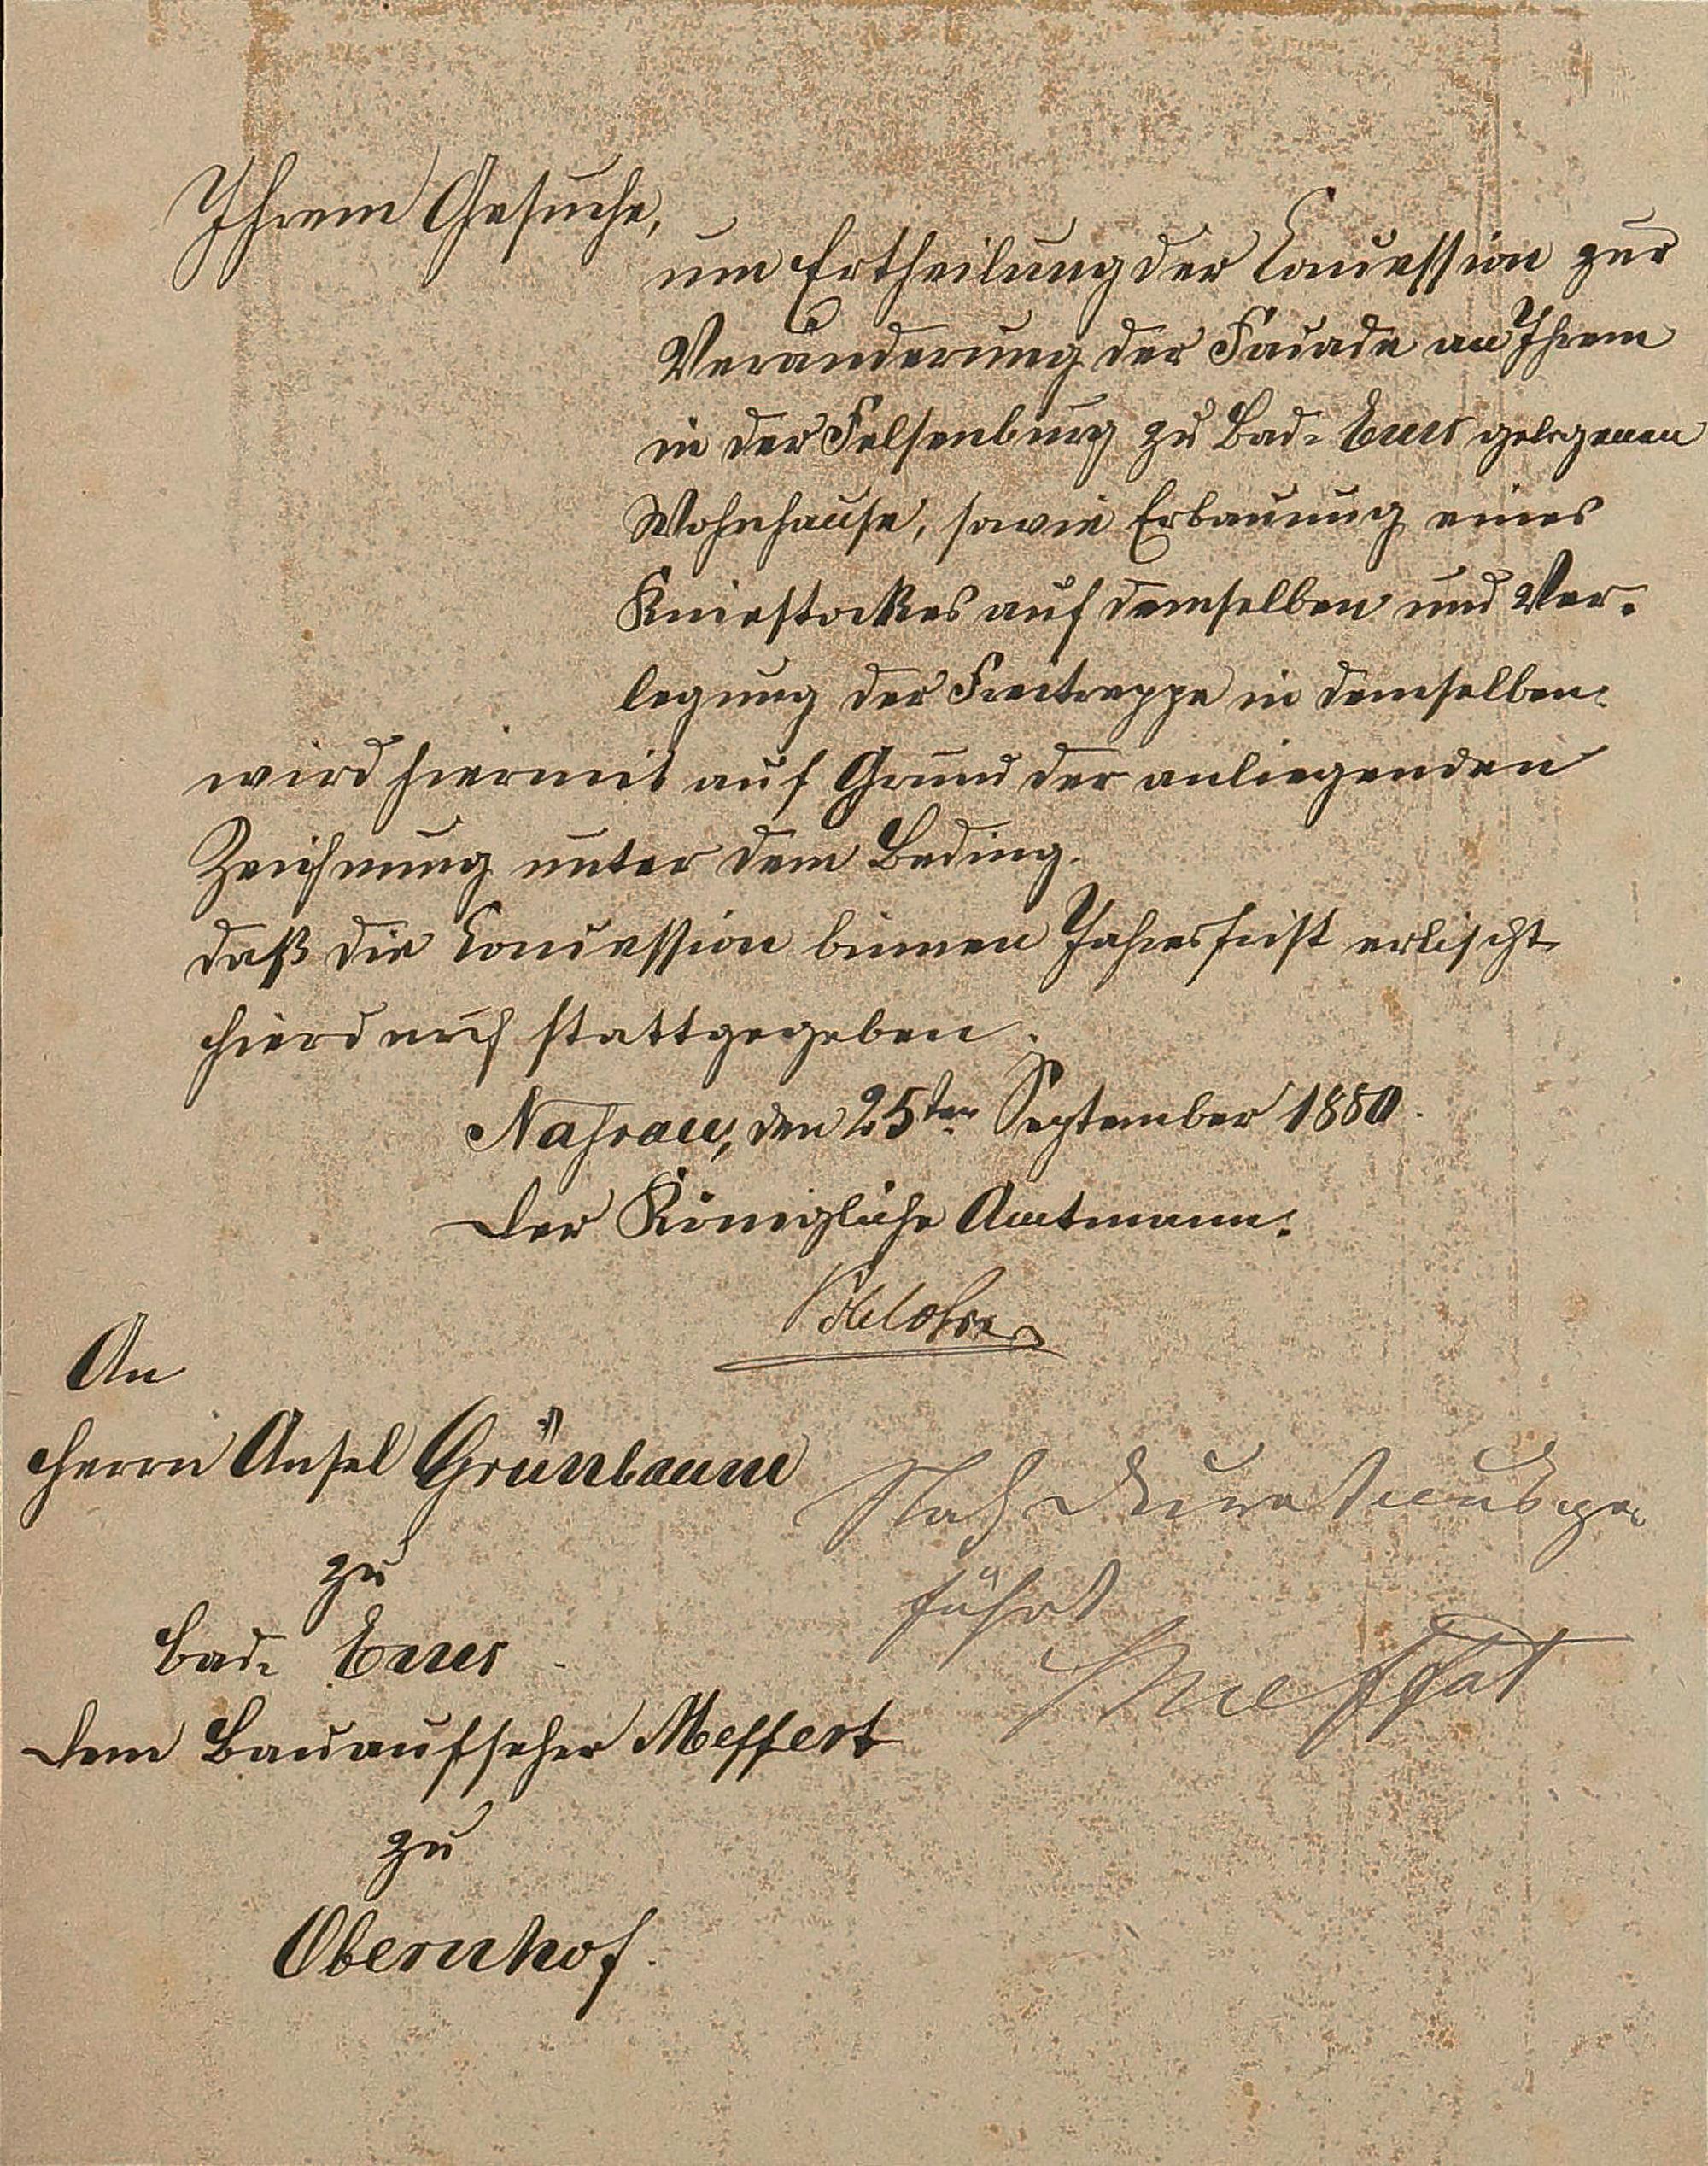 Ihrem Gesuche,
um Ertheilung der Concession zur
Veränderung der Facade an Ihrem
in der Felsenburg zu Bad-Ems gelegenen
Wohnhause, sowie Erbauung eines
Kniestockes auf demselben und Ver-
legung der Freitreppe in demselben
wird hiermit auf Grund der anliegenden
Zeichnung unter dem Beding.
daß die Concession binnen Jahresfrist erlischt
hierdurch stattgegeben.
Nassau, den 25ten September 1880.
Der Königliche Amtmann.
An
Herrn Ansel Grünbaum
Nach ausge-
führt
zu
Bad-Ems
Meffert
Dem Bauaufseher Meffert
zu
Obernhof.